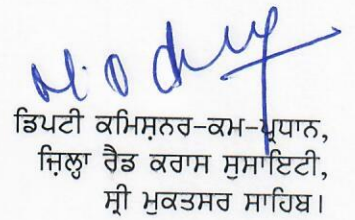 ਡਿਪਟੀ ਕਮਿਸ਼ਨਰ-ਕਮ-ਪ੍ਰਧਾਨ,
ਜ਼ਿਲ੍ਹਾ ਰੈਡ ਕਰਾਸ ਸੁਸਾਇਟੀ,
ਸ੍ਰੀ ਮੁਕਤਸਰ ਸਾਹਿਬ।